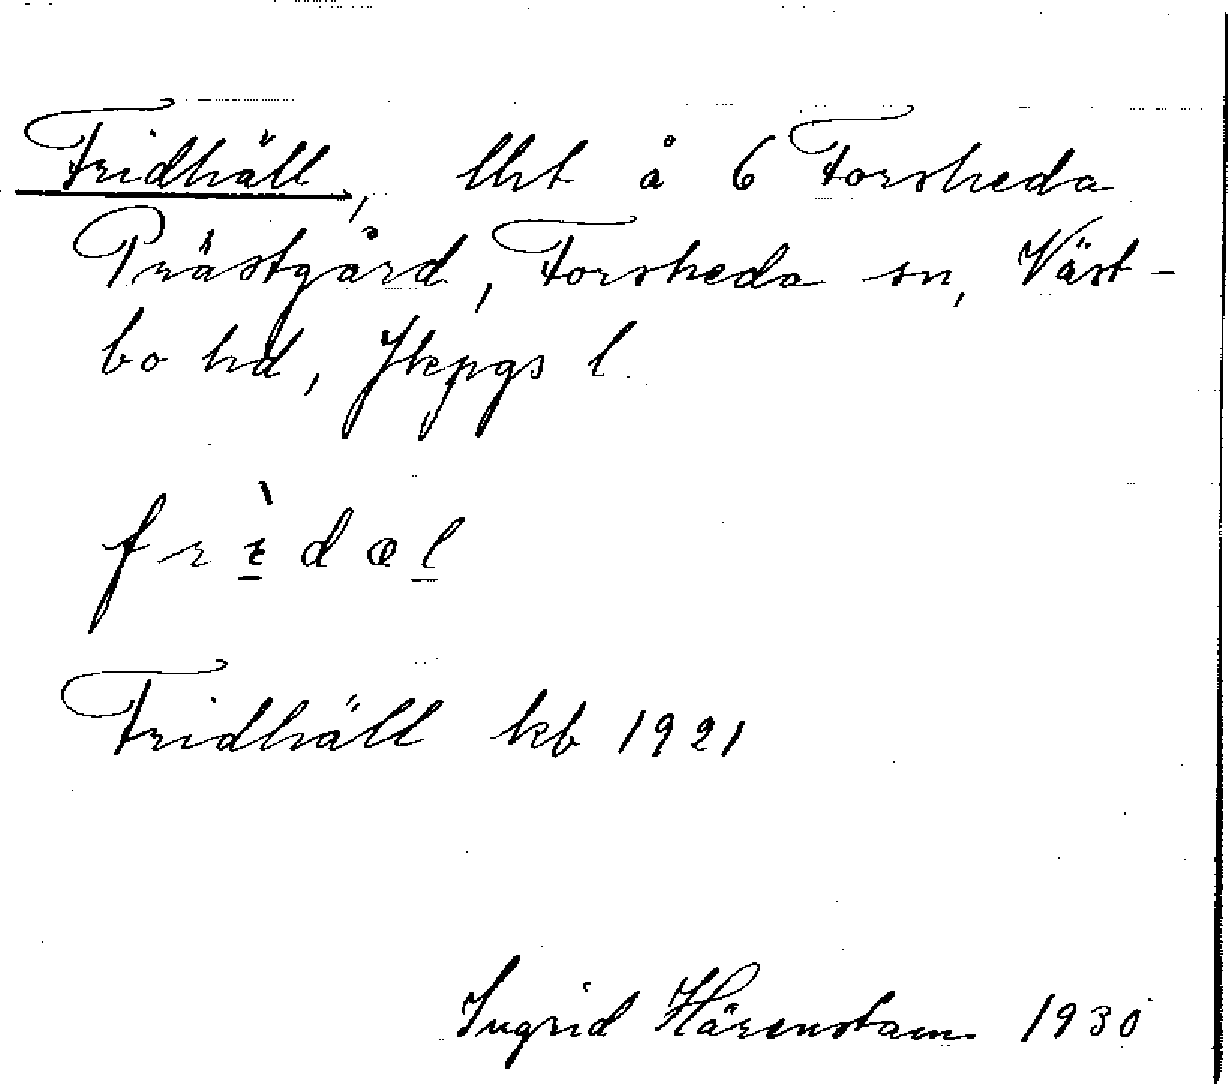 Fridhäll, lht å 6 Forsheda
Prästgård, Forsheda sn, Väst-
bo hd, Jkpgs l.
Fridhäll kb 1921
Ingrid Härenstam 1930